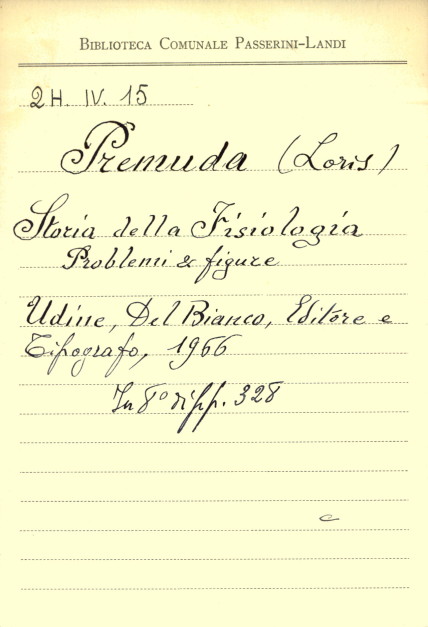 BIBLIOTECA COMUNALE PASSERINI-LANDI
2H. IV. 15
Premuda (Loris)
Storia della Fisiologia
Problemi & figure
Udine, Del Bianco, Editore e
Tipografo, 1966
In 8° di pp. 328
c